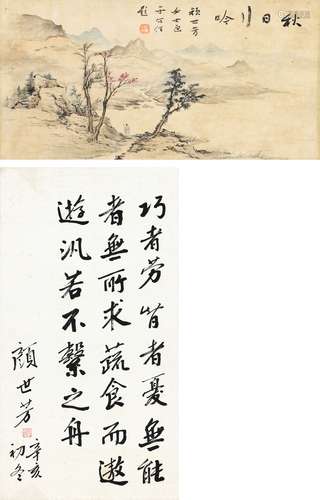 秋日行吟
顏世芳
女士画
于右任
題
巧者劳智者憂無能
者無所求蔬食而遨
遊汎若不繫之舟
顏世芳
辛亥
初冬